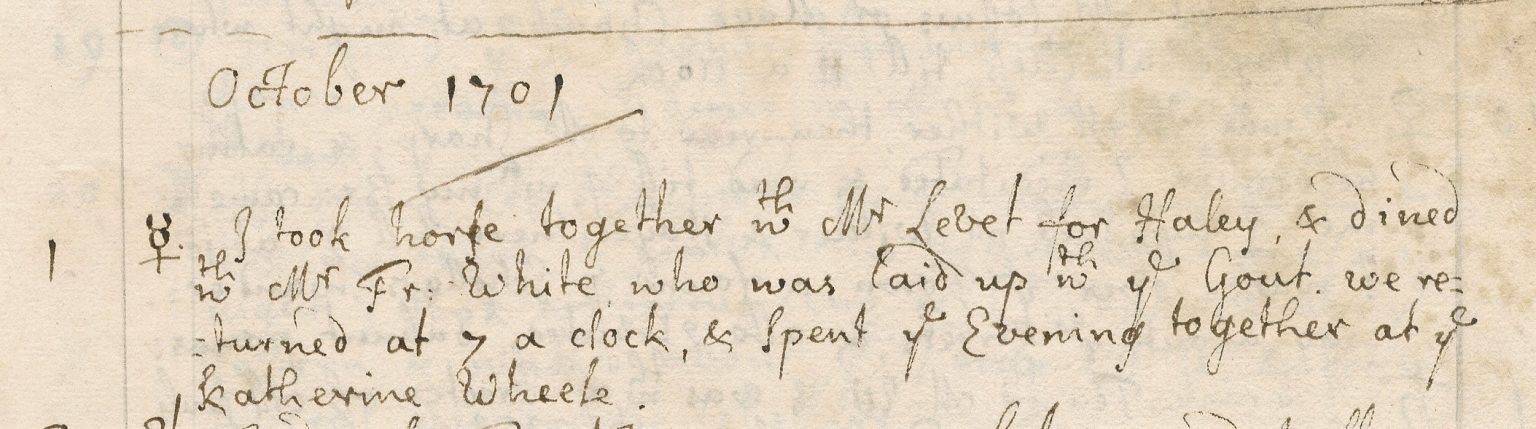 October 1701
1 ☿. I took horse together wth Mr Levet for Haley, & dined
wth Mr Fr: White, who was laid up wth ye Gout. we re=
=turned at 7 a clock, & spent ye Evening together at ye
Katherine Wheele.